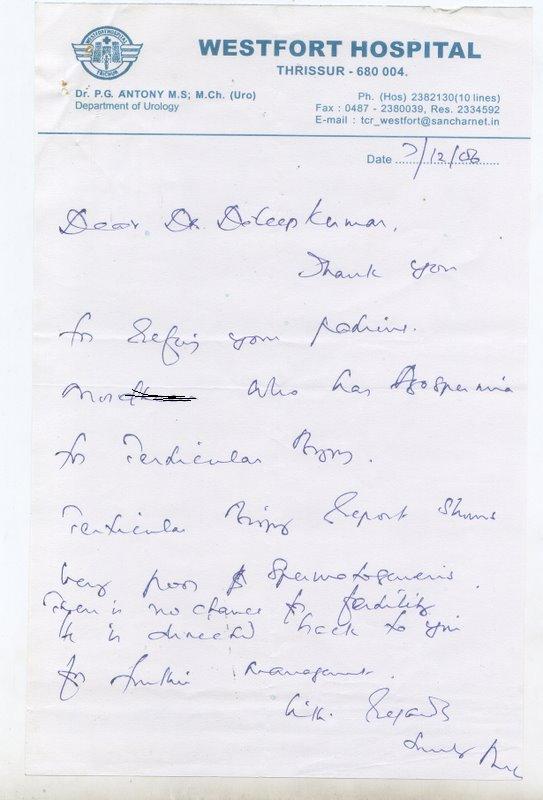 WESTFORT HOSPITAL
TRICHUR
WESTFORT HOSPITAL
THRISSUR - 680 004.
Dr. P.G. ANTONY M.S; M.Ch. (Uro)
Department of Urology
Ph. (Hos) 2382130(10 lines)
Fax : 0487 - 2380039, Res. 2334592
E-mail : tcr_westfort@sancharnet.in
Date 7/12/06
Dear Dr. Dileep Kumar,
Thank you
for Refering your patient.
who has Azospermia
for Testicular Biopsy.
Testicular Biopsy Report shows
very poor Spermatogenesis.
There is no chance for fertility
He is directed back to you
for further management.
With Regards